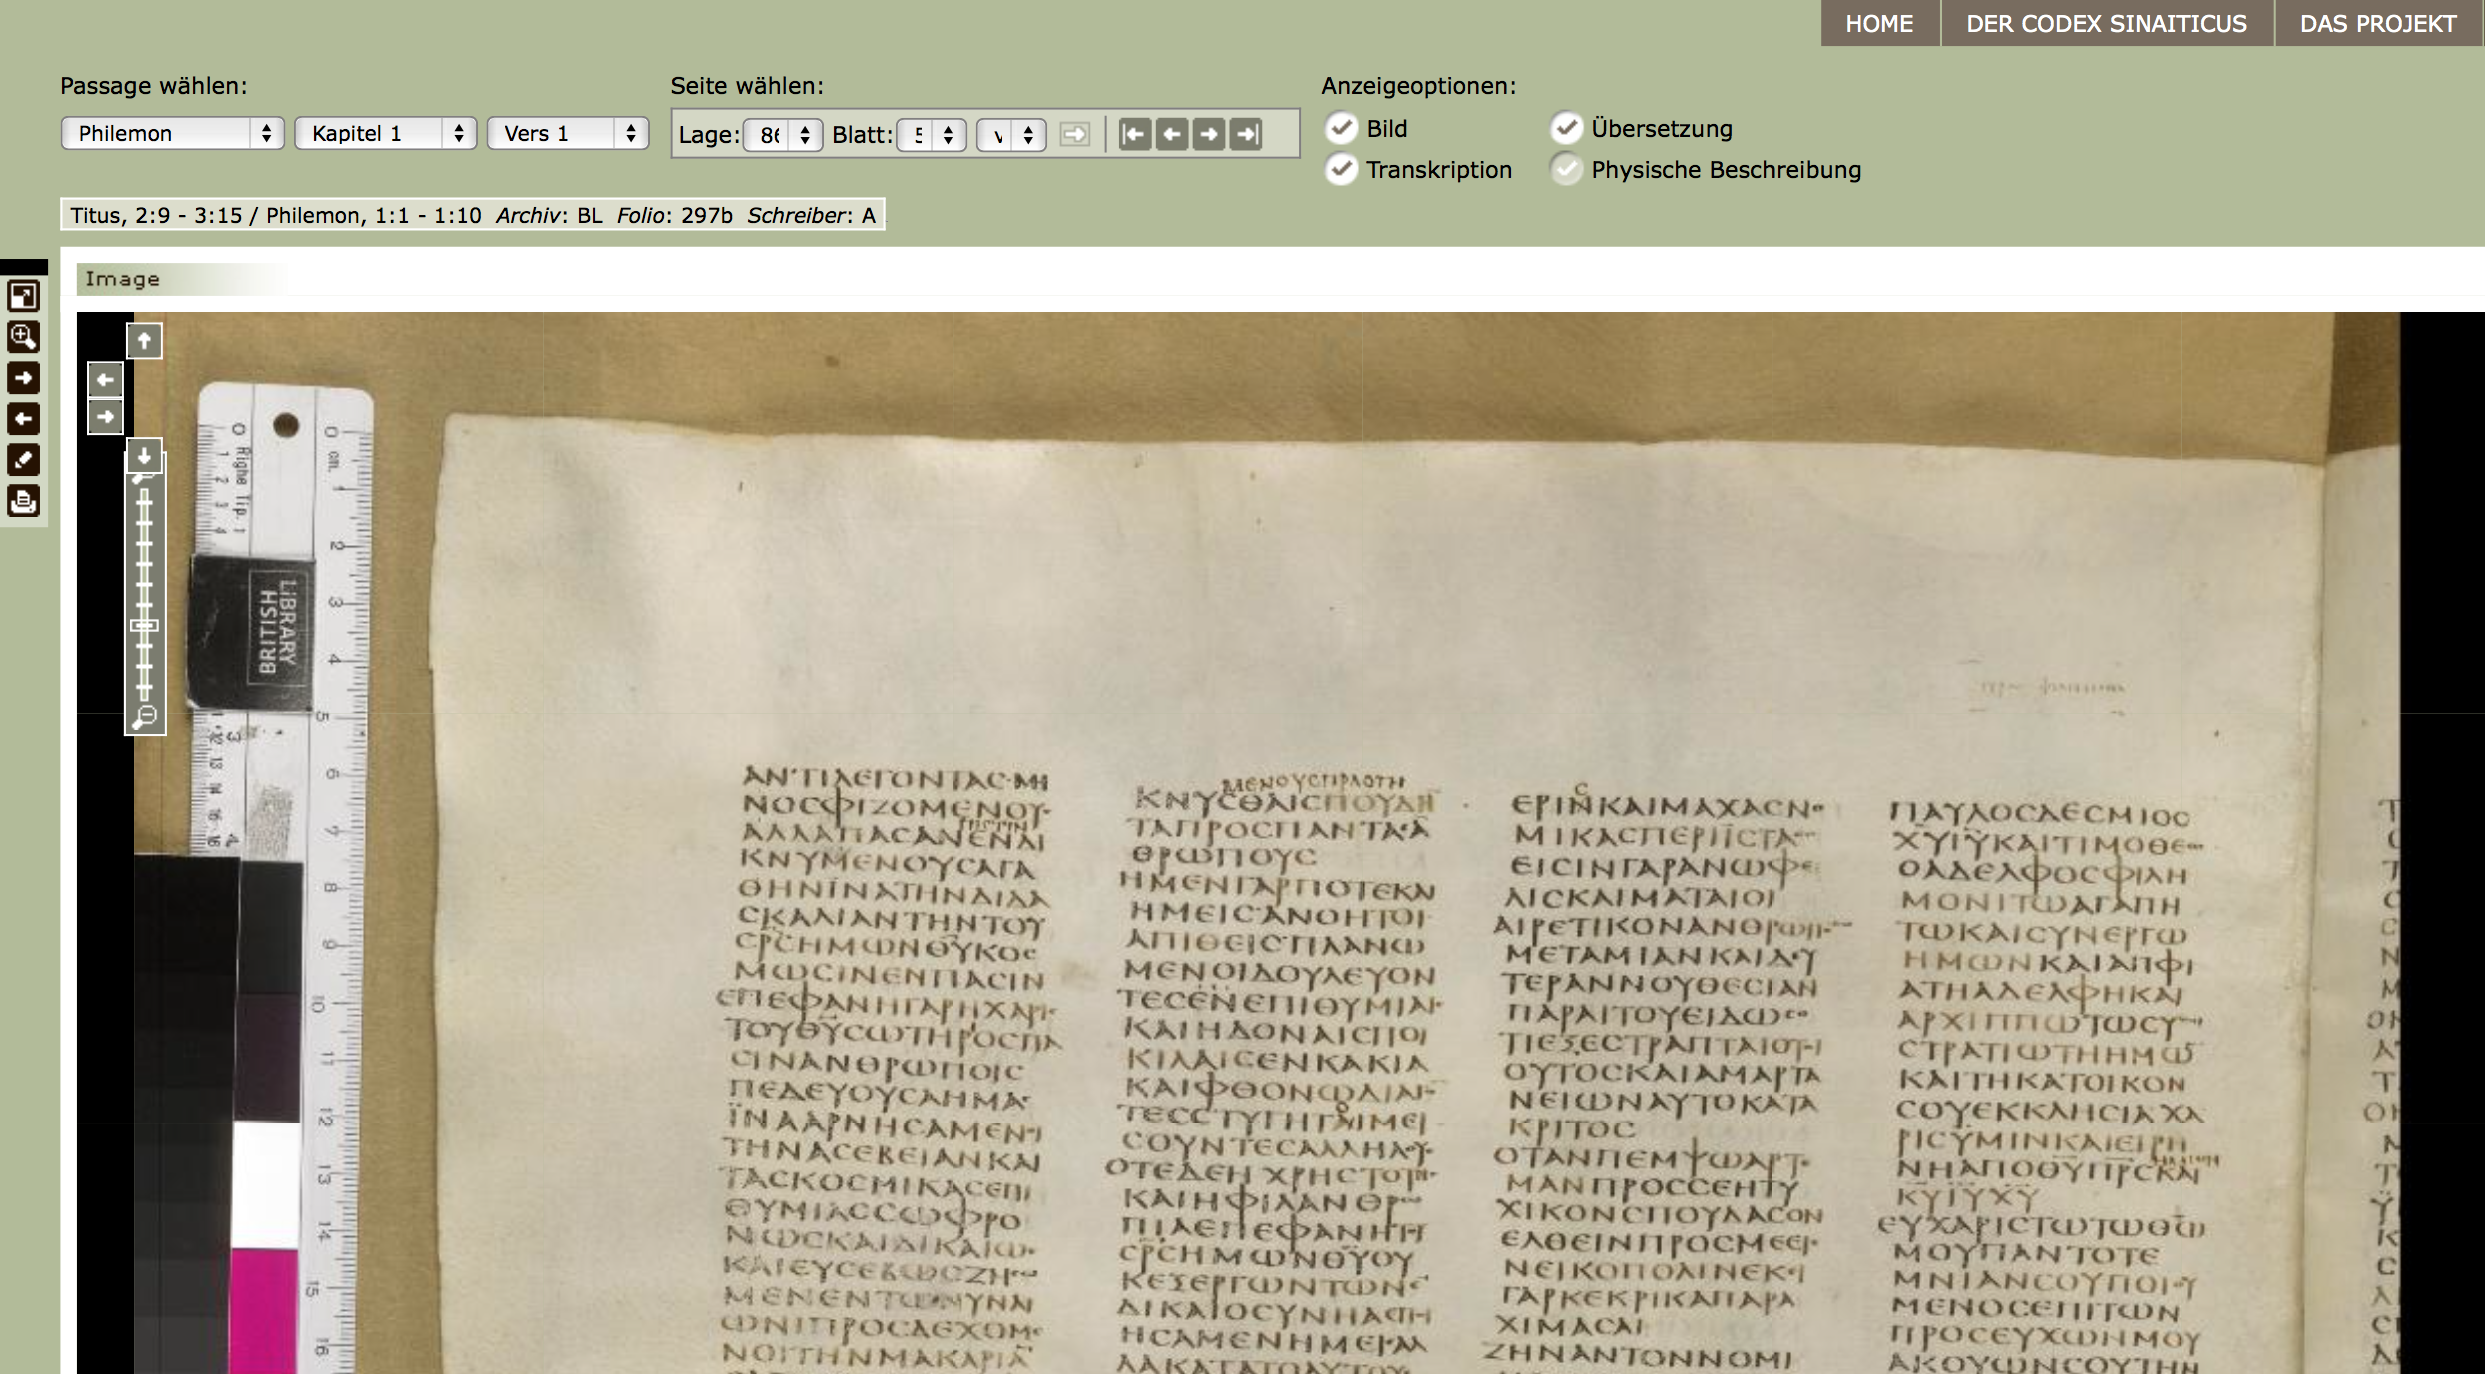 HOME DER CODEX SINAITICUS DAS PROJEKT
Passage wählen: Seite wählen: Anzeigeoptionen:
Philemon Kapitel 1 Vers 1 Lage: 86 Blatt: 5 v Bild Übersetzung
Transkription Physische Beschreibung
Titus, 2:9 - 3:15 / Philemon, 1:1 - 1:10 Archiv: BL Folio: 297b Schreiber: A
Image
BRITISH
LIBRARY
ΑΝΤΙΛΕΓΟΝΤΑϹ ΜΗ
ΝΟϹΦΙΖΟΜΕΝΟΥ
ΑΛΛΑΠΑϹΑΝ
ΚΝΥΜΕΝΟΥϹΑΓΑ
ΘΗΝΙΝΑΤΗΝΔΙΔΑ
ϹΚΑΛΙΑΝΤΗΝΤΟΥ
ϹΡ̅Ϲ̅ΗΜΩΝΘ̅Υ̅ΚΟϹ
ΜΩϹΙΝΕΝΠΑϹΙΝ
ΕΠΕΦΑΝΗΓΑΡΗΧΑΡΙ
ΤΟΥΘ̅Υ̅ϹΩΤΗΡΟϹΠΑ
ϹΙΝΑΝΘΡΩΠΟΙϹ
ΠΕΔΕΥΟΥϹΑΗΜΑ
ΪΝΑΑΡΝΗϹΑΜΕΝΟΙ
ΤΗΝΑϹΕΒΕΙΑΝΚΑΙ
ΤΑϹΚΟϹΜΙΚΑϹΕΠΙ
ΘΥΜΙΑϹϹΩΦΡΟ
ΝΩϹΚΑΙΔΙΚΑΙΩ
ΚΑΙΕΥϹΕΒΩϹΖΗ
ΜΕΝΕΝΤΩΝΥΝΑΙ
ΩΝΙΠΡΟϹΔΕΧΟΜΕ
ΝΟΙΤΗΝΜΑΚΑΡΙΑ̅
ΜΕΝΟΥϹΠΡΑΟΤΗ
ΚΝΥϹΘΑΙϹΠΟΥΔΗ
ΤΑΠΡΟϹΠΑΝΤΑϹΑ̅
ΘΡΩΠΟΥϹ
ΗΜΕΝΓΑΡΠΟΤΕΚΑΙ
ΗΜΕΙϹΑΝΟΗΤΟΙ
ΑΠΙΘΕΙϹΠΛΑΝΩ
ΜΕΝΟΙΔΟΥΛΕΥΟΝ
ΤΕϹΕΝΕΠΙΘΥΜΙΑΙϹ
ΚΑΙΗΔΟΝΑΙϹΠΟΙ
ΚΙΛΑΙϹΕΝΚΑΚΙΑ
ΚΑΙΦΘΟΝΩΔΙΑΓ
ΤΕϹϹΤΥΓΗΤΑΙΜΕΙ
ϹΟΥΝΤΕϹΑΛΛΗΛΟΥ
ΟΤΕΔΕΗΧΡΗϹΤΟΤΗϹ
ΚΑΙΗΦΙΛΑΝΘΡΩ
ΠΙΑΕΠΕΦΑΝΗΤΟΥ
ϹΡ̅Ϲ̅ΗΜΩΝΘ̅Υ̅ΟΥ
ΚΕΞΕΡΓΩΝΤΩΝΕ
ΔΙΚΑΙΟϹΥΝΗΑΕΠΗ
ΗϹΑΜΕΝΗΜΕΙϹΑΛ
ΛΑΚΑΤΑΤΟΑΥΤΟΥ
ΕΡΙΝΚΑΙΜΑΧΑϹΝΟ
ΜΙΚΑϹΠΕΡΙΪϹΤΑ
ΕΙϹΙΝΓΑΡΑΝΩΦΕ
ΛΙϹΚΑΙΜΑΤΑΙΟΙ
ΑΙΡΕΤΙΚΟΝΑΝΘΡΩΠΟΝ
ΜΕΤΑΜΙΑΝΚΑΙΔΕΥ
ΤΕΡΑΝΝΟΥΘΕϹΙΑΝ
ΠΑΡΑΙΤΟΥΕΙΔΩϹΟ
ΤΙΕΞΕϹΤΡΑΠΤΑΙΟΤΟΙ
ΟΥΤΟϹΚΑΙΑΜΑΡΤΑ
ΝΕΙΩΝΑΥΤΟΚΑΤΑ
ΚΡΙΤΟϹ
ΟΤΑΝΠΕΜΨΩΑΡΤΕ
ΜΑΝΠΡΟϹϹΕΗΤΥ
ΧΙΚΟΝϹΠΟΥΔΑϹΟΝ
ΕΛΘΕΙΝΠΡΟϹΜΕΕΙϹ
ΝΕΙΚΟΠΟΛΙΝΕΚΕΙ
ΓΑΡΚΕΚΡΙΚΑΠΑΡΑ
ΧΙΜΑϹΑΙ
ΖΗΝΑΝΤΟΝΝΟΜΙ
ΠΑΥΛΟϹΔΕϹΜΙΟϹ
Χ̅Υ̅Ι̅Υ̅ΚΑΙΤΙΜΟΘΕΟϹ
ΟΑΔΕΛΦΟϹΦΙΛΗ
ΜΟΝΙΤΩΑΓΑΠΗ
ΤΩΚΑΙϹΥΝΕΡΓΩ
ΗΜΩΝΚΑΙΑΠΦΙ
ΑΤΗΑΔΕΛΦΗΚΑΙ
ΑΡΧΙΠΠΩΤΩϹΥ
ϹΤΡΑΤΙΩΤΗΗΜΩ̅
ΚΑΙΤΗΚΑΤΟΙΚΟΝ
ϹΟΥΕΚΚΛΗϹΙΑΧΑ
ΡΙϹΥΜΙΝΚΑΙΕΙΡΗ
ΝΗΑΠΟΘ̅Υ̅Π̅Ρ̅Ϲ̅ΚΑΙ
Κ̅Υ̅Ι̅Υ̅Χ̅Υ̅
ΕΥΧΑΡΙϹΤΩΤΩΘ̅Ω̅
ΜΟΥΠΑΝΤΟΤΕ
ΜΝΙΑΝϹΟΥΠΟΙΟΥ
ΜΕΝΟϹΕΠΙΤΩΝ
ΠΡΟϹΕΥΧΩΝΜΟΥ
ΑΚΟΥΩΝϹΟΥΤΗΝ